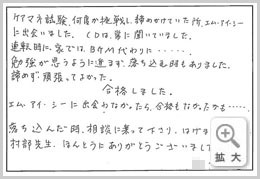 ケアマネ試験、何度か挑戦し、諦めかけていた所、エム・アイ・シー
に出会いました。CDは、常に聞いていました。
運転時に、家では、BGM代わりに・・・・・・
勉強が思うように進まず、落ち込む時もありました。
諦めず頑張ってよかった。
合格しました。
エム・アイ・シーに出会わなかったら、合格もなかったかも・・・・
落ち込んだ時、相談に乗って下さり、はげま
村部先生、ほんとうにありがとうございまし
拡大